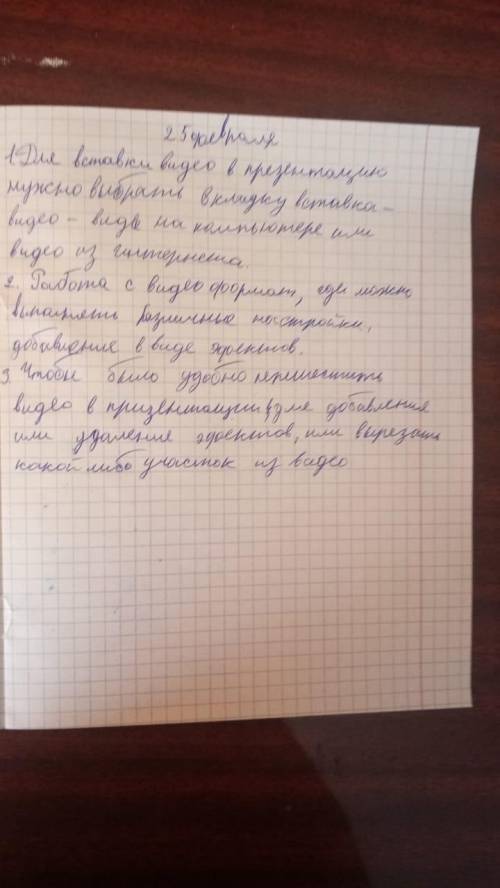 25 февраля
1. Для вставки видео в презентацию
нужно выбрать вкладку вставка -
видео - видео на компьютере или
видео из интернета.
2. Работа с видео формат, где можно
выполнять различные настройки,
добавление в виде эфектов.
3. Чтобы было удобно переместить
видео в призентации, для добавления
или удаления эфектов, или вырезать
какой либо участок из видео